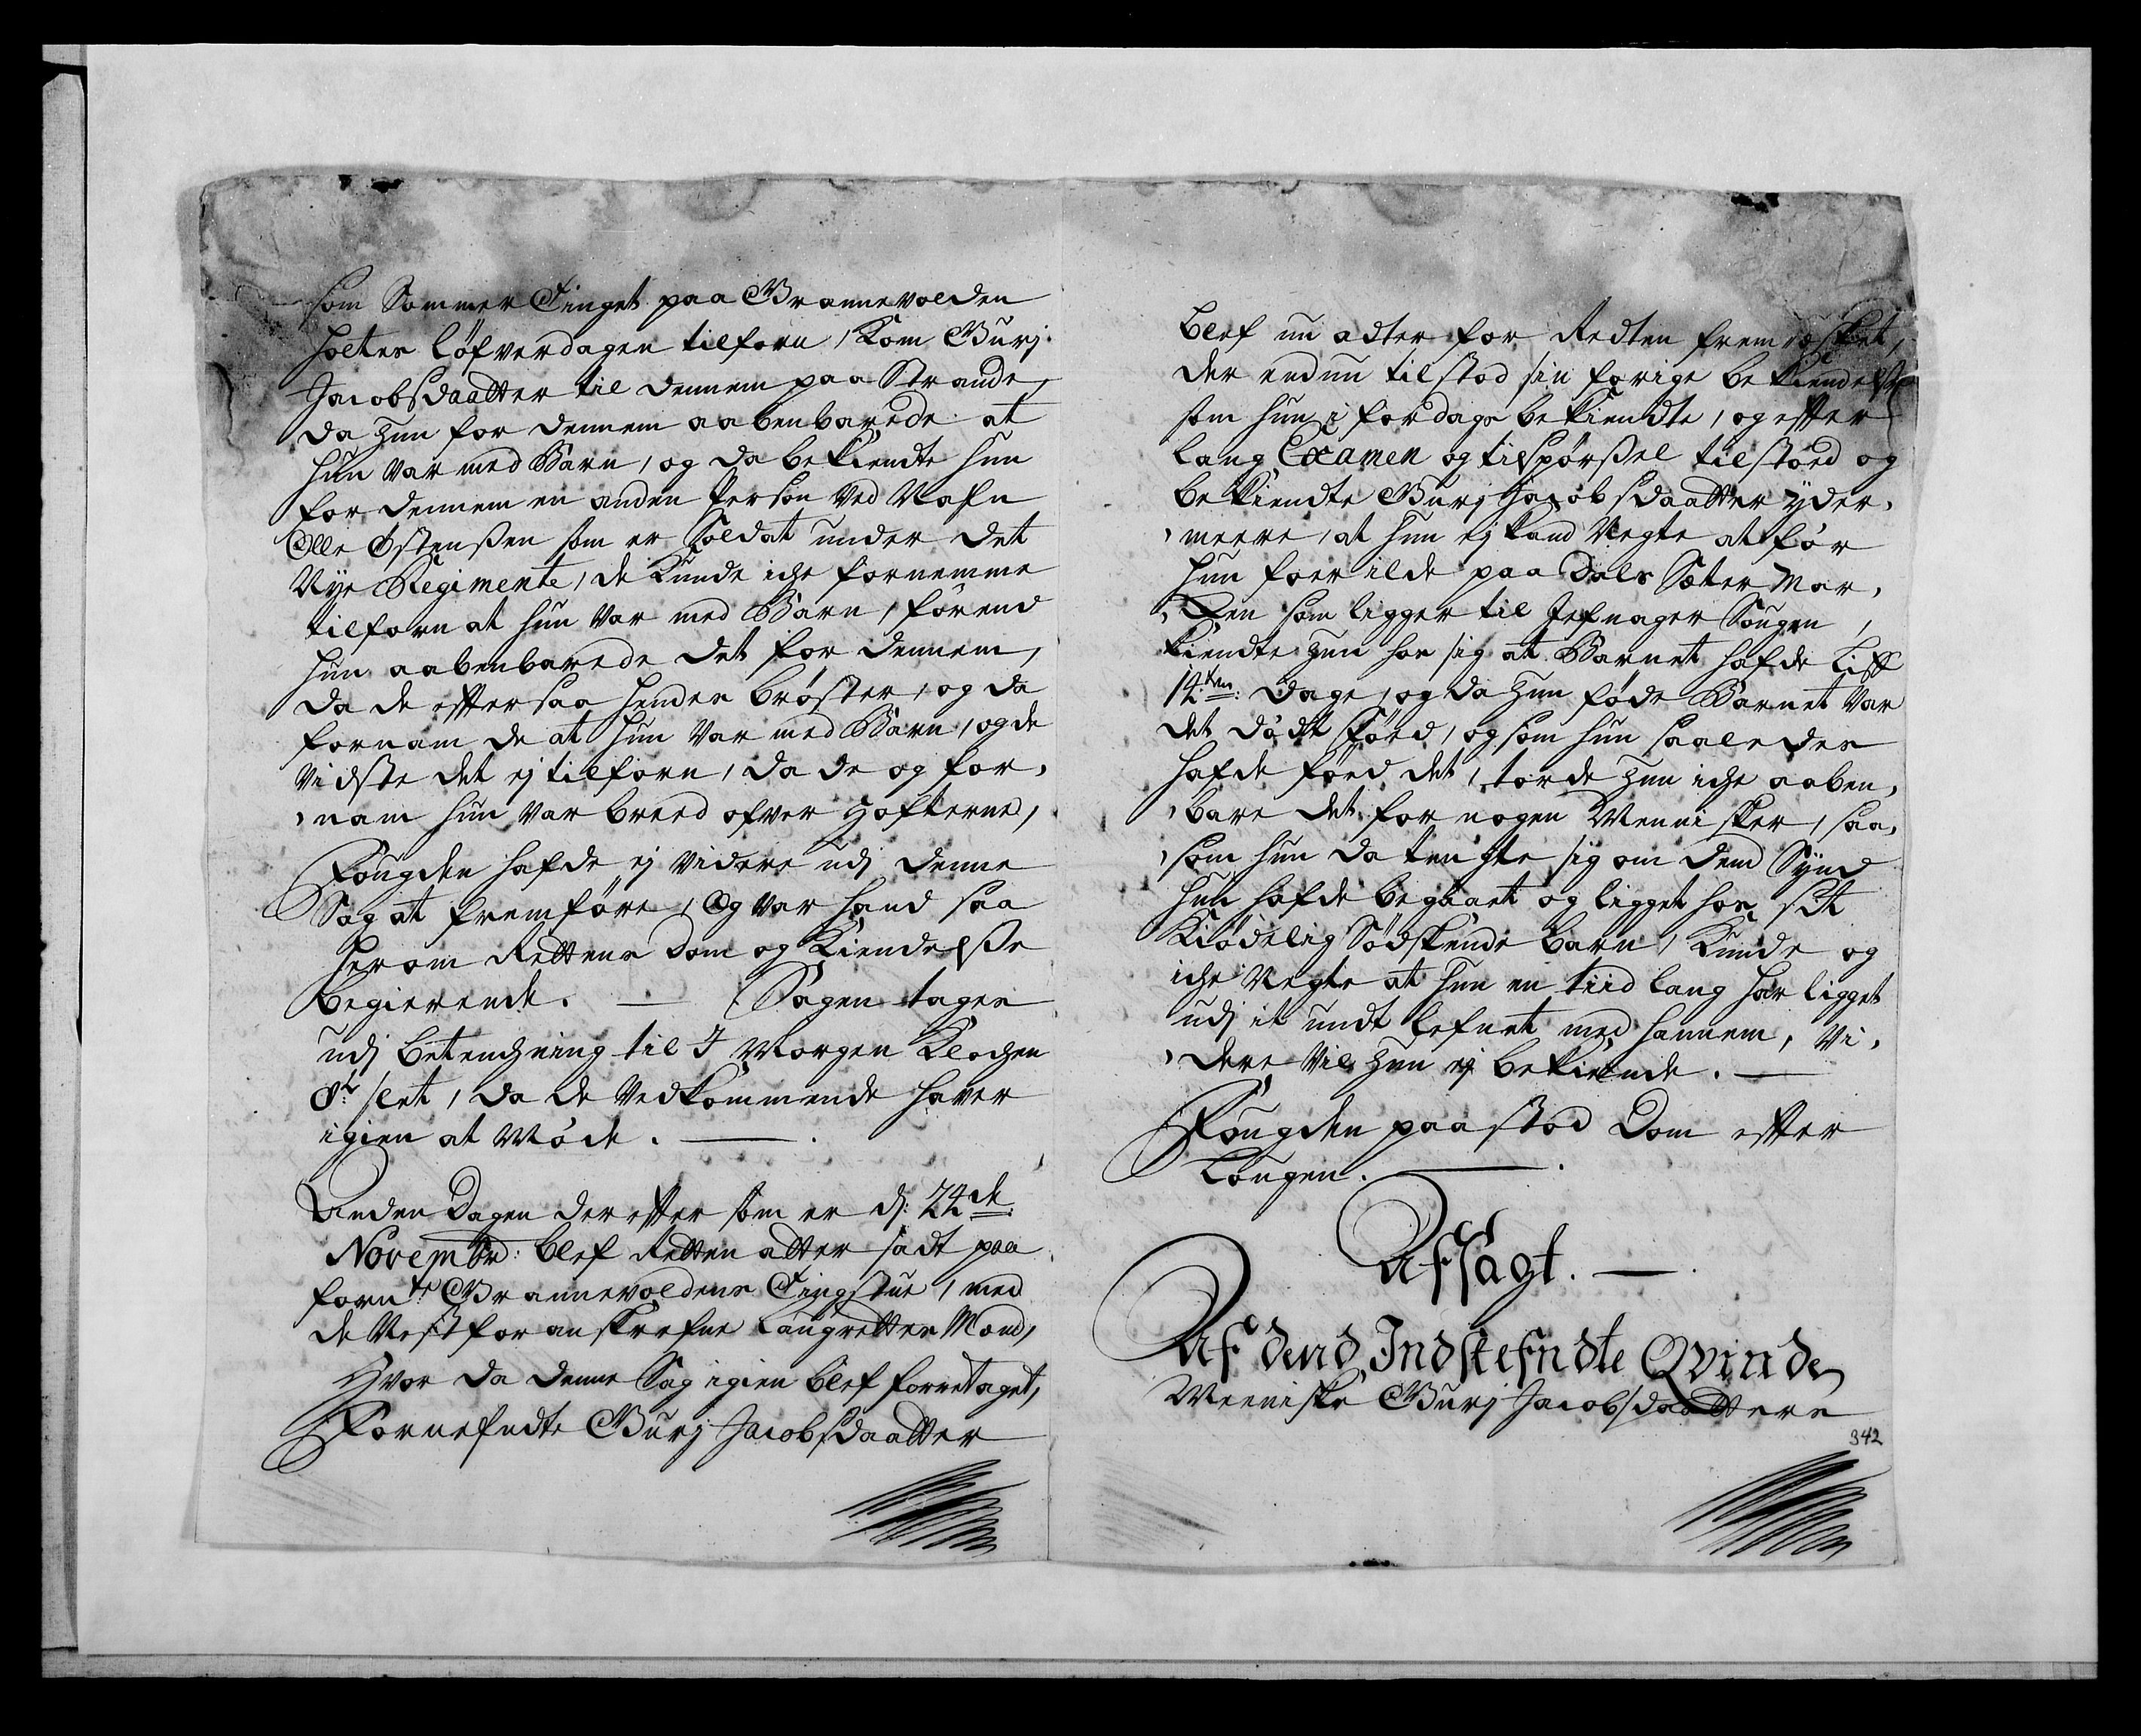 som Sommer Tinget paa Grannevolden
holtes løfverdagen tilforn, kom Gurj
Jacobsdaatter til dennem paa Strande,
da hun for dennem aabenbarede at
hun var med Barn, og da bekiendte hun
for dennem en anden Person ved Nafn
Olle Østensen som er Soldat under det
Nye Regimente, de kunde iche fornemme
tilforn at hun var med Barn, førend
hun aabenbarede det for dennem,
da de efftersaa hendes brøster, og da
fornam de at hun var med Barn, og de
vidste det ej tilforn, da de og for,
,nam hun var breed ofver hofterne,
Fougden hafde ej videre udj denne
Sag at fremføre, Og var hand saa
herom Rettens dom og Kiendelsse
begierende. — Sagen tages
udj betenchning til I Morgen Klochen
8te slet, da de vedkommende haver
igien at møde. —
Anden Dagen der effter som er d: 24de
Novembr: blef Retten atter sadt paa
fornte Grannevoldens Tingstue, med
de Nest foranskrefne Laugrettes Mænd,
Hvor da denne Sag igien blef forretaget,
Fornefndte Gurj Jacobsdaatter
blef nu adter for Redten fremæsket,
der endnu tilstod sin forige bekiendelse
som hun i fordags bekiendte, og effter
lang Examen og tilspørssel tilstoed og
bekiendte Gurj Jacobsdaatter yder,
,meere, at hun ej kand Negte at før
hun foer ilde paa Dals Sæter Mar,
,ken som ligger til Jefnager Sougen,
kiendte hun hos sig at Barnet hafde Liff
14ten: dage, og da hun føde Barnet var
det dødt fød, og som hun saaledes
hafde føed det, torde hun iche aaben,
,bare det for nogen Mennisker, saa,
,som hun da tenchte sig om dend Synd
hun hafde begaaet og ligget hos sit
Kiødelig Sødskende barn, Kunde og
iche Negte at hun en tiid lang har ligget
udj it undt lefnet med hannem, Vi,
,dere Vil hun ej bekiende. —
Fougden paastod Dom effter
Lougen. —
Afsagt. —
Af dend Indstefndte Qvinde
Menniske Gurj Jacobsdaatters
342